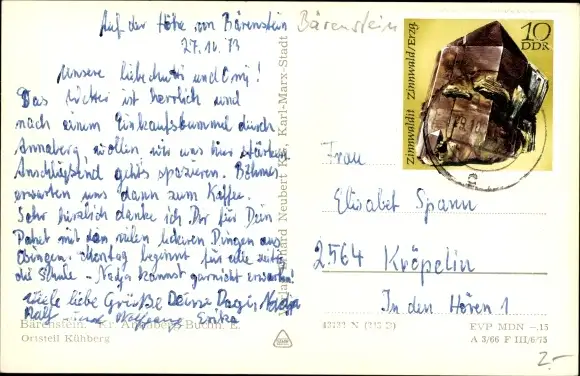 Auf der Höhe von Bärenstein
Bärenstein
27.10.73
Unsere liebe und Omi!
Das Wetter ist herrlich und
nach einem Einkaufsbummel durch
Annaberg wollen wir uns hier stärken
Anschließend gehts spazieren. Böhmes
erwarten uns dann zum Kaffee.
Sehr herzlich danke ich Dir für Dein
Paket mit den vielen leckeren Dingen aus
Montag beginnt für alle
die Schule - Nadja kanns garnicht erwarten!
Viele liebe Grüße Deine Dagi, Nadja
Ralf und Wolfgang Erika
Bärenstein, Kr. Annaberg-Buchh. E.
Ortsteil Kühberg
Neubert KG, Karl-Marx-Stadt
10
DDR
Zinnwaldit Zinnwald/Erzg.
Frau
Elisabet Spann
2564 Kröpelin
In den Hören 1
EVP MDN -,15
A 3/66 F III/6/75
2.-